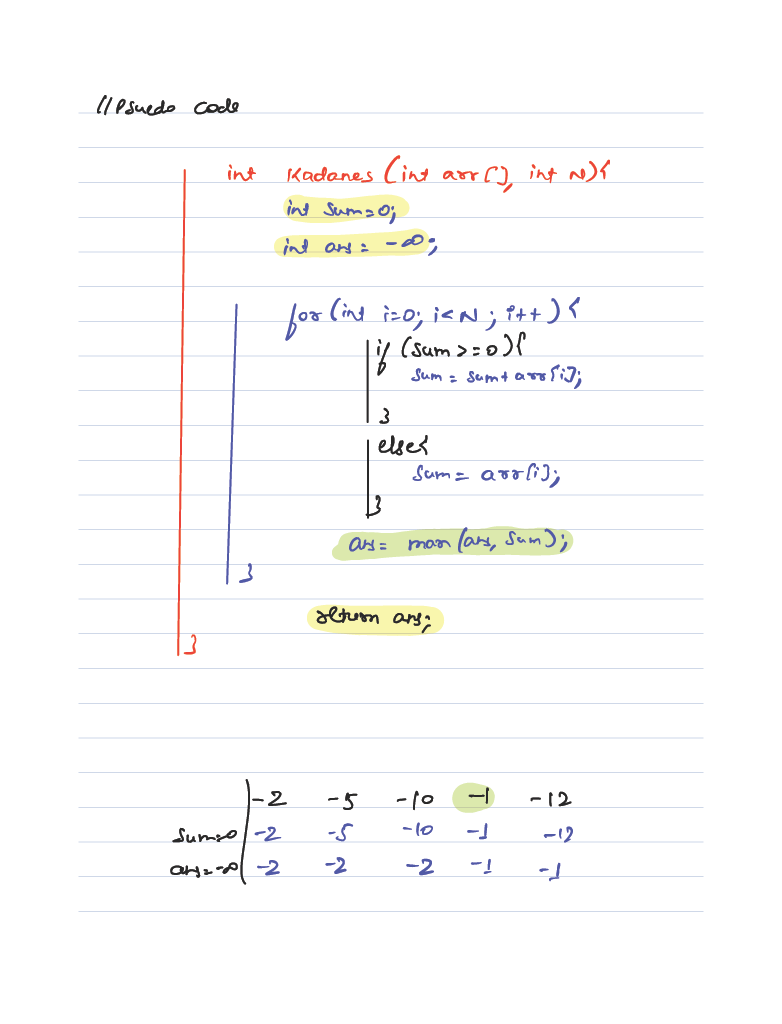 //Psuedo Code
int Kadanes (int arr[], int N){
int sum=0;
int ans = -∞;
for (int i=0; i<N; i++) {
if (sum >= 0){
sum = sum+arr[i];
}
else{
sum = arr[i];
}
ans = max(ans, sum);
}
return ans;
}
-2 -5 -10 -1 -12
sum=0 -2 -5 -10 -1 -12
ans=-∞ -2 -2 -2 -1 -1